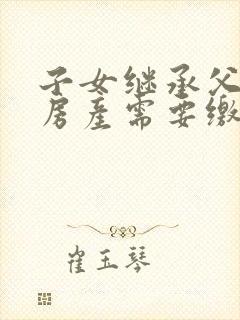 子女继承父
房产需要缴
崔玉琴